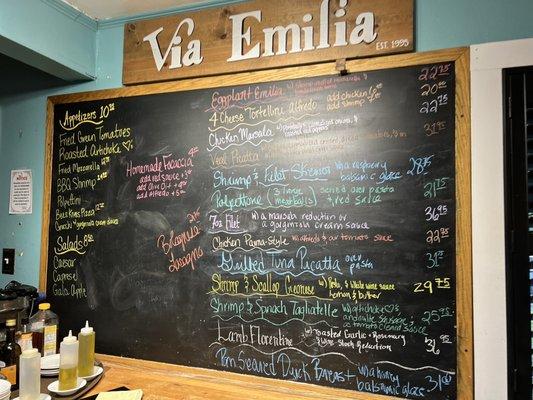 Via Emilia
EST. 1995
Appetizers 10
Fried Green Tomatoes
Roasted Artichoke
Fried Mozzarella
BBQ Shrimp
Polpettine
Pizza
Salads
Caesar
Caprese
Gala Apple
Homemade Focaccia
add red sauce
add Olive Oil
add alfredo
Bolognese
Lasagna
Eggplant Emilia 22.95
4 Cheese Tortellini Alfredo add chicken
add Shrimp 20.00
Chicken Marsala 22.95
Veal Picatta 31.95
Shrimp & Filet Skewer w/a raspberry
balsamic glaze 28.95
Polpettone (3 Turkey
meatballs) served over pasta
& red sauce 21.75
7oz Filet w/a marsala reduction or
a gorgonzola cream sauce 36.95
Chicken Parma-Style w/alfredo & our tomato sauce 22.75
Grilled Tuna Picatta over
pasta 31.
Shrimp & Scallop w/ white wine sauce
lemon & butter 29.75
Shrimp & Spinach Tagliatelle w/artichoke
sausage in
tomato cream sauce 25.75
Lamb Florentine w/Roasted Garlic + Rosemary
Wine Stock Reduction 36.95
Pan Seared Duck Breast w/a honey
balsamic glaze 31.00